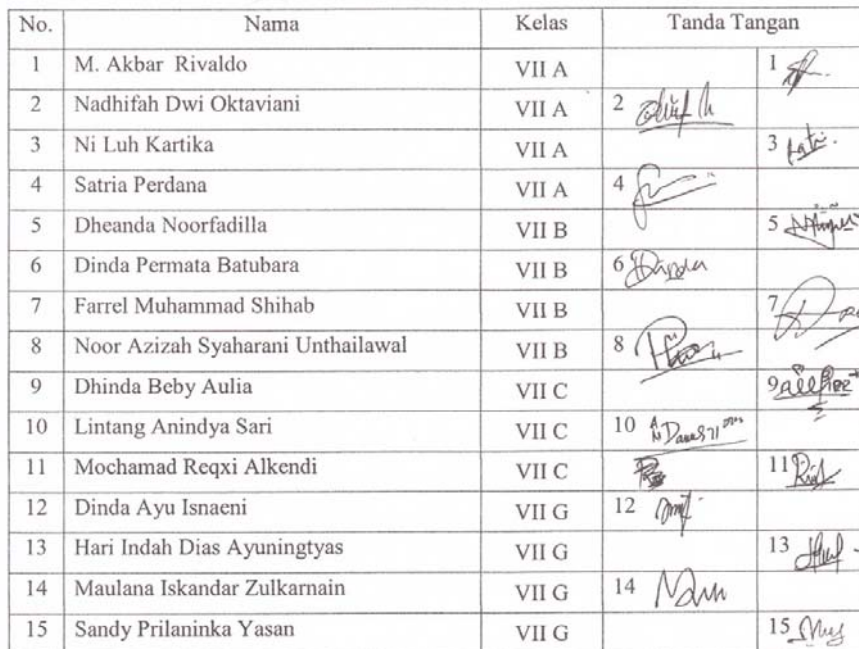 No. Nama Kelas Tanda Tangan
1 M. Akbar Rivaldo VII A 1
2 Nadhifah Dwi Oktaviani VII A 2
3 Ni Luh Kartika VII A 3
4 Satria Perdana VII A 4
5 Dheanda Noorfadilla VII B 5
6 Dinda Permata Batubara VII B 6 Dinda
7 Farrel Muhammad Shihab VII B 7
8 Noor Azizah Syaharani Unthailawal VII B 8
9 Dhinda Beby Aulia VII C 9
10 Lintang Anindya Sari VII C 10
11 Mochamad Reqxi Alkendi VII C 11
12 Dinda Ayu Isnaeni VII G 12
13 Hari Indah Dias Ayuningtyas VII G 13
14 Maulana Iskandar Zulkarnain VII G 14
15 Sandy Prilaninka Yasan VII G 15